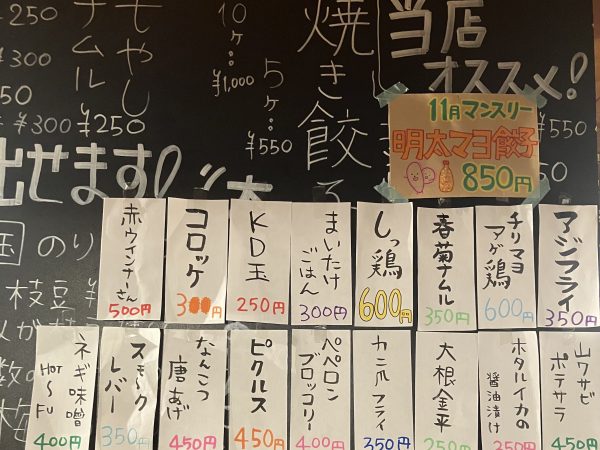 当店
オススメ!
焼き餃子
5ヶ:
¥550
10ヶ:
¥1,000
もやし
ナムル
¥250
¥250
¥300
¥300
出せます!
のり
枝豆
11月マンスリー
明太マヨ餃子
850円
アジフライ
350円
チリマヨ
アゲ鶏
600円
春菊ナムル
350円
しっ鶏
600円
まいたけ
ごはん
300円
KD玉
250円
コロッケ
300円
赤ウインナーさん
500円
山ワサビ
ポテサラ
450円
ホタルイカの
醤油漬け
350円
大根金平
250円
カニ爪フライ
350円
ペペロン
ブロッコリー
400円
ピクルス
450円
なんこつ
唐あげ
450円
スモーク
レバー
350円
ネギ味噌
HOT〜FU
400円